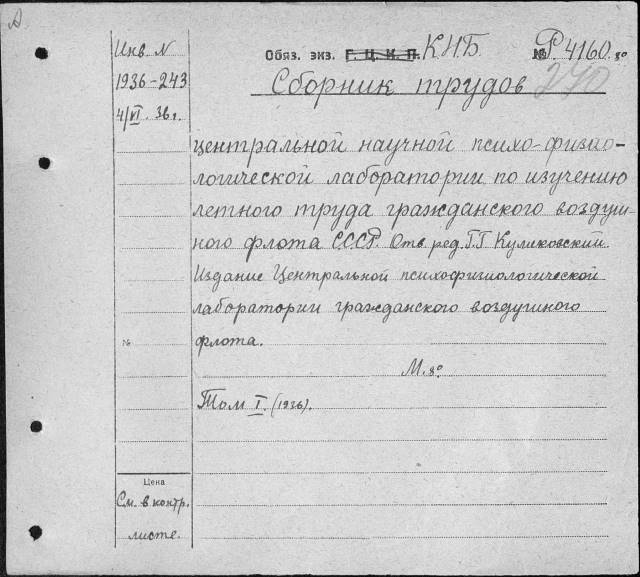 Инв N
1936-243
4/VI. 36 г.
Обяз. экз. Г. Ц. К. П. КНБ № Р. 4160. 8°
270
Сборник трудов
центральной научной психо-физио-
логической лаборатории по изучению
летного труда гражданского воздуш
ного флота СССР. Отв. ред. Г. Г. Куликовский.
Издание Центральной психофизиологической
лаборатории гражданского воздушного
№ флота.
М. 8°
Том I. (1936).
Цена
См. в контр.
листе.